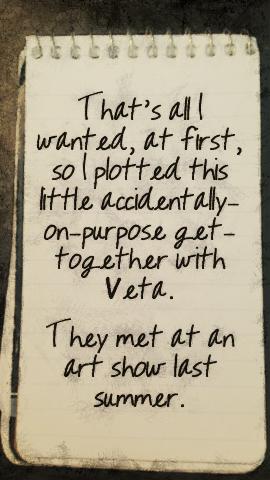 That's all I
wanted, at first,
so I plotted this
little accidentally-
on-purpose get-
together with
Veta.
They met at an
art show last
summer.